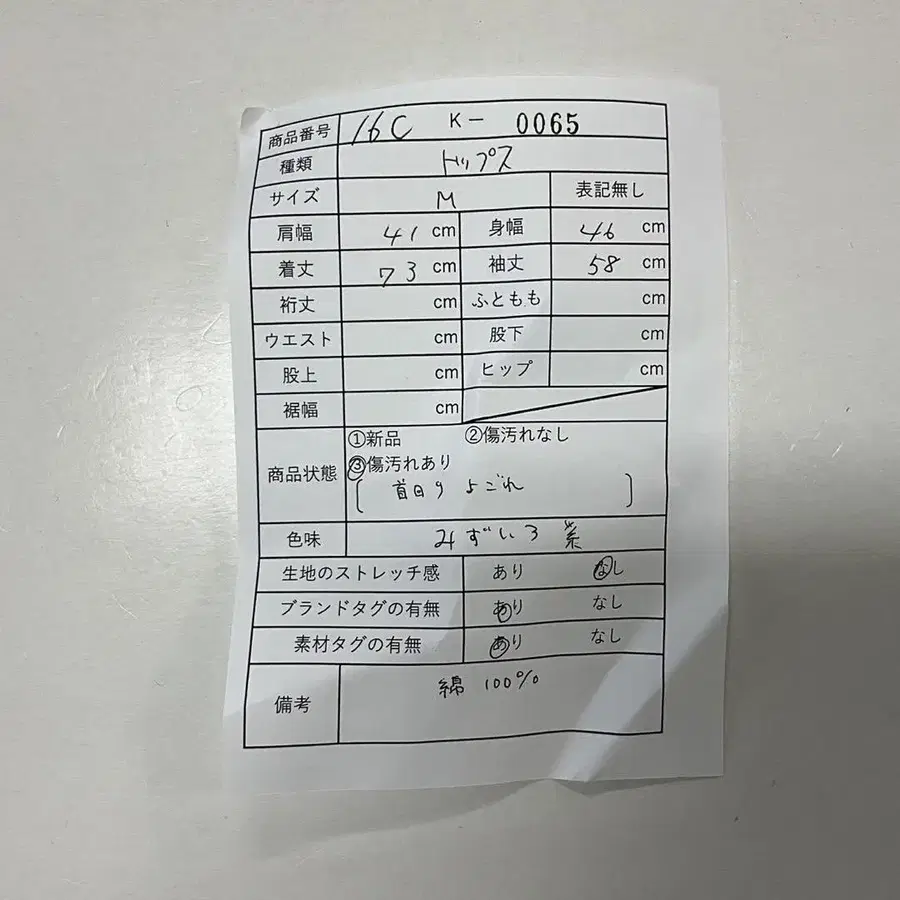 商品番号 16C K- 0065
種類 トップス
サイズ M 表記無し
肩幅 41 cm 身幅 46 cm
着丈 73 cm 袖丈 58 cm
裄丈 cm ふともも cm
ウエスト cm 股下 cm
股上 cm ヒップ cm
裾幅 cm
①新品 ②傷汚れなし
商品状態 ③傷汚れあり
[ 首回り よごれ ]
色味 みずいろ系
生地のストレッチ感 あり なし
ブランドタグの有無 あり なし
素材タグの有無 あり なし
備考 綿 100%